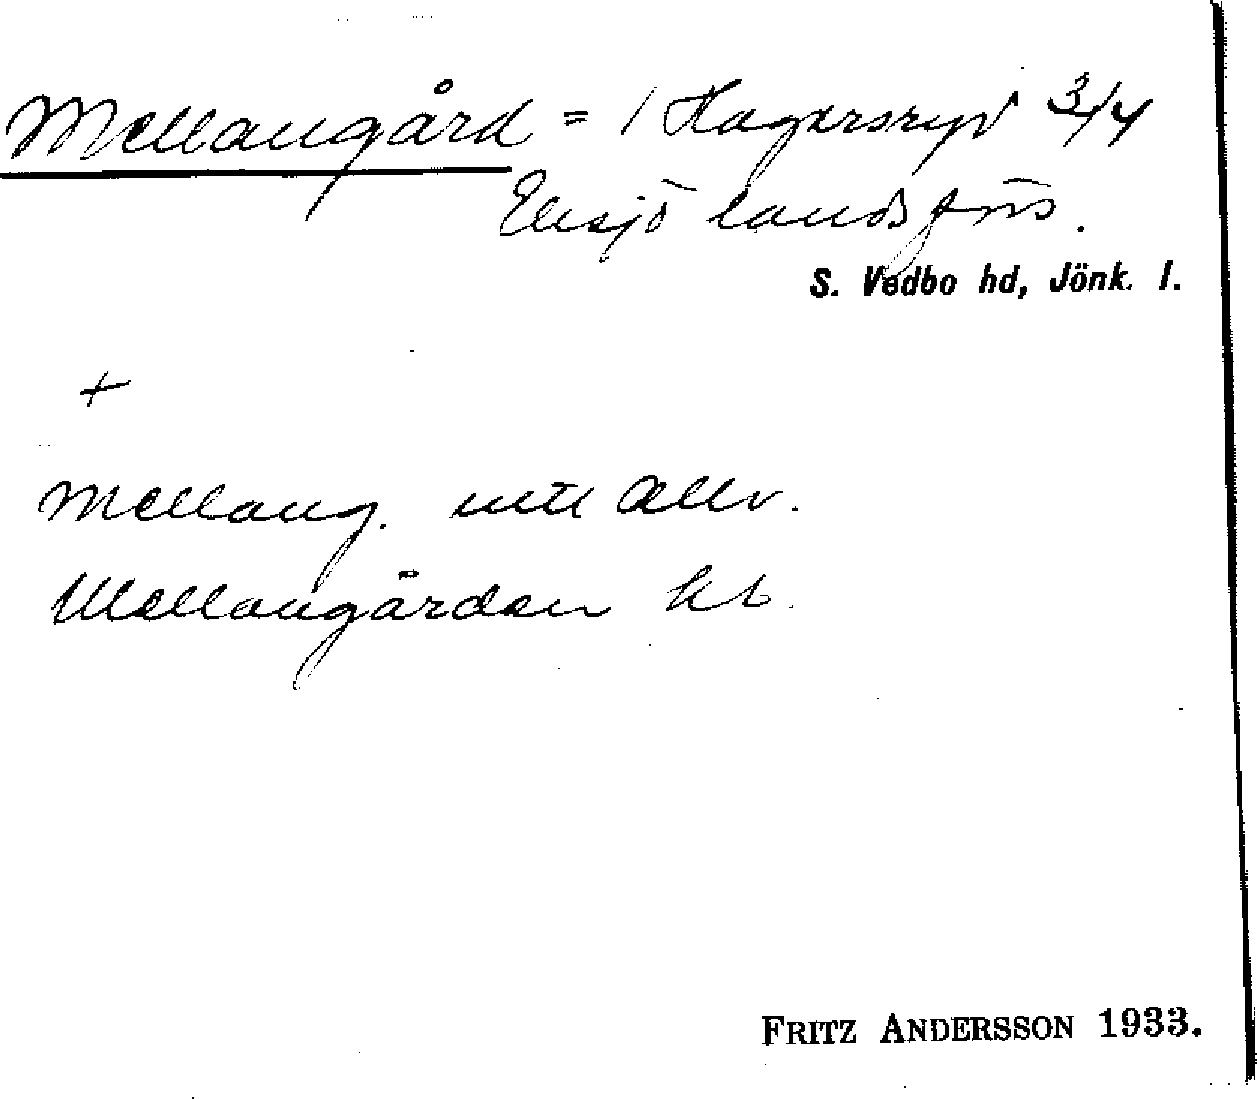 Mellangård = / Hagersryd 3/4
Eksjö landsförs.
S. Vedbo hd, Jönk. l.
+
Mellang. uttl Allv.
Mellangården kb.
FRITZ ANDERSSON 1933.